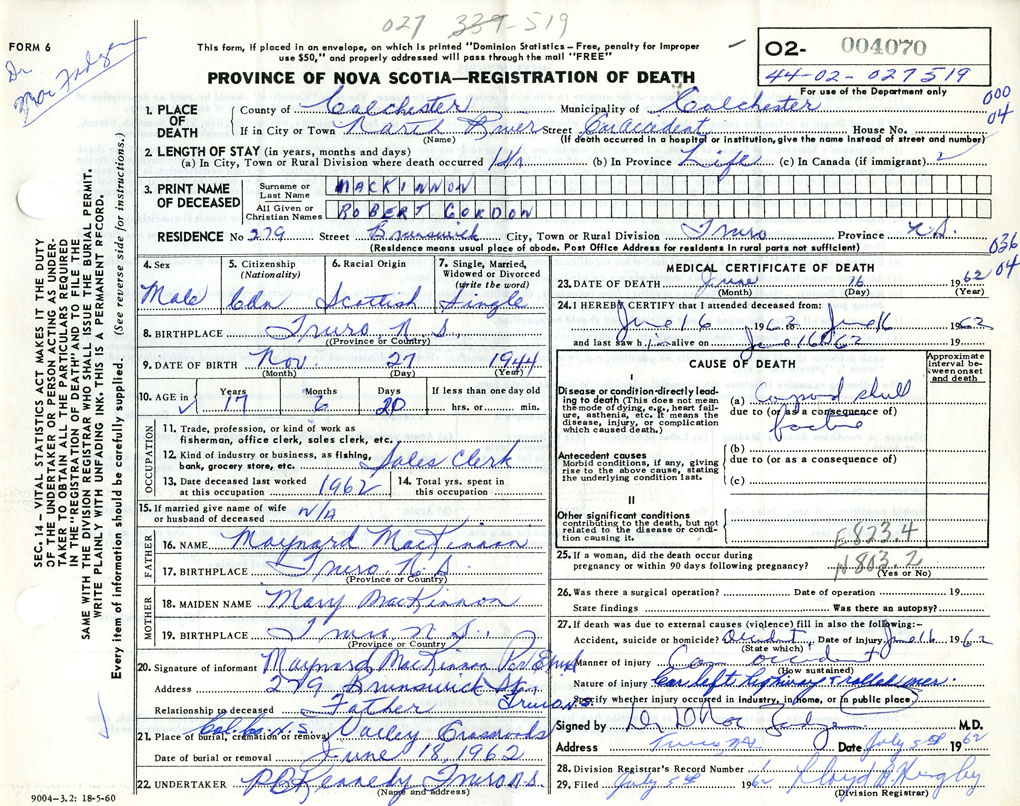 027 339-519
FORM 6
Dr
This form, if placed in an envelope, on which is printed "Dominion Statistics – Free, penalty for improper
use $50," and properly addressed will pass through the mail "FREE"
02- 004070
44-02-027519
For use of the Department only
PROVINCE OF NOVA SCOTIA—REGISTRATION OF DEATH
000
04
1. PLACE OF DEATH
County of Colchester Municipality of Colchester
If in City or Town North River Street Car accident House No.
(Name) (If death occurred in a hospital or institution, give the name instead of street and number)
2. LENGTH OF STAY (in years, months and days)
(a) In City, Town or Rural Division where death occurred 1 hr (b) In Province Life (c) In Canada (if immigrant)
3. PRINT NAME OF DECEASED
Surname or Last Name MACKINNON
All Given or Christian Names ROBERT GORDON
RESIDENCE No 279 Street Brunswick City, Town or Rural Division Truro Province N.S.
(Residence means usual place of abode. Post Office Address for residents in rural parts not sufficient)
036
04
4. Sex Male
5. Citizenship (Nationality) Cdn
6. Racial Origin Scottish
7. Single, Married, Widowed or Divorced (write the word) Single
8. BIRTHPLACE Truro N.S.
(Province or Country)
9. DATE OF BIRTH Nov. 27 1944
(Month) (Day) (Year)
10. AGE in Years 17 Months 6 Days 20 If less than one day old hrs. or min.
OCCUPATION
11. Trade, profession, or kind of work as
fisherman, office clerk, sales clerk, etc.
12. Kind of industry or business, as fishing,
bank, grocery store, etc. Sales Clerk
13. Date deceased last worked
at this occupation 1962
14. Total yrs. spent in
this occupation
15. If married give name of wife
or husband of deceased N/A
FATHER
16. NAME Maynard MacKinnon
17. BIRTHPLACE Truro N.S.
(Province or Country)
MOTHER
18. MAIDEN NAME Mary MacKinnon
19. BIRTHPLACE Truro N.S.,
(Province or Country)
20. Signature of informant Maynard MacKinnon Per
Address 279 Brunswick St., Truro N.S.
Relationship to deceased Father
21. Place of burial, cremation or removal Col. Co. N.S. Valley Crossroads
Date of burial or removal June 18, 1962
22. UNDERTAKER Kennedy Truro N.S.
(Name and address)
9004-3.2: 18-5-60
MEDICAL CERTIFICATE OF DEATH
23. DATE OF DEATH June 16 1962
(Month) (Day) (Year)
24. I HEREBY CERTIFY that I attended deceased from:
June 16 1962 to June 16 1962
and last saw him alive on June 16 1962
CAUSE OF DEATH
Approximate interval between onset and death
I
Disease or condition directly leading to death (This does not mean
the mode of dying, e.g., heart failure, asthenia, etc. It means the
disease, injury, or complication
which caused death.)
(a) skull
due to (or as a consequence of)
Antecedent causes
Morbid conditions, if any, giving
rise to the above cause, stating
the underlying condition last.
(b)
due to (or as a consequence of)
(c)
II
Other significant conditions
contributing to the death, but not
related to the disease or condition causing it.
E823.4
N803.2
25. If a woman, did the death occur during
pregnancy or within 90 days following pregnancy?
(Yes or No)
26. Was there a surgical operation? Date of operation 19
State findings Was there an autopsy?
27. If death was due to external causes (violence) fill in also the following:—
Accident, suicide or homicide? Accident Date of injury June 16 1962
(State which)
Manner of injury Car accident
(How sustained)
Nature of injury Car left highway & rolled over.
Specify whether injury occurred in industry, in home, or in public place
Signed by M.D.
Address Truro NS Date July 5th 1962
28. Division Registrar's Record Number
29. Filed July 5th 196 Lloyd
(Division Registrar)
SEC. 14 – VITAL STATISTICS ACT MAKES IT THE DUTY
OF THE UNDERTAKER OR PERSON ACTING AS UNDERTAKER TO OBTAIN ALL THE PARTICULARS REQUIRED
IN THE "REGISTRATION OF DEATH" AND TO FILE THE
SAME WITH THE DIVISION REGISTRAR WHO SHALL ISSUE THE BURIAL PERMIT.
WRITE PLAINLY WITH UNFADING INK. THIS IS A PERMANENT RECORD.
Every item of information should be carefully supplied. (See reverse side for instructions.)